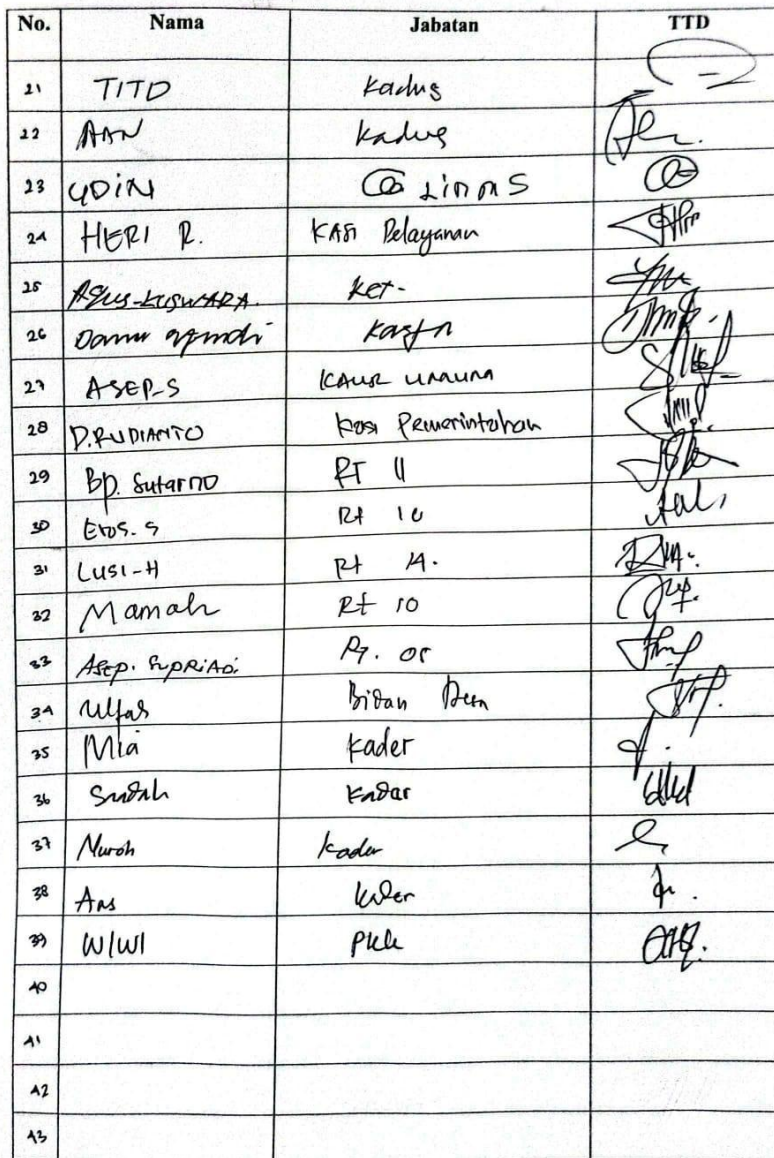 No. Nama Jabatan TTD
21 TITO Kadus
22 AAN Kadus
23 UDIN LINMAS
24 HERI R. KASI Pelayanan
25 Agus-KUSWARA. Ket-
26
27 ASEP-S KAUR UMUM
28 D.RUDIANTO Kasi Pemerintahan
29 Bp. Sutarno RT 11
30 Eros. S Rt
31 LUSI-H Rt 14.
32 Mamah Rt 10
33 Asep. SupRiADi
34 Bidan
35 Mia Kader
36 Kadar
37 Nuroh Kader
38 kader
39 WIWI PKK
40
41
42
43